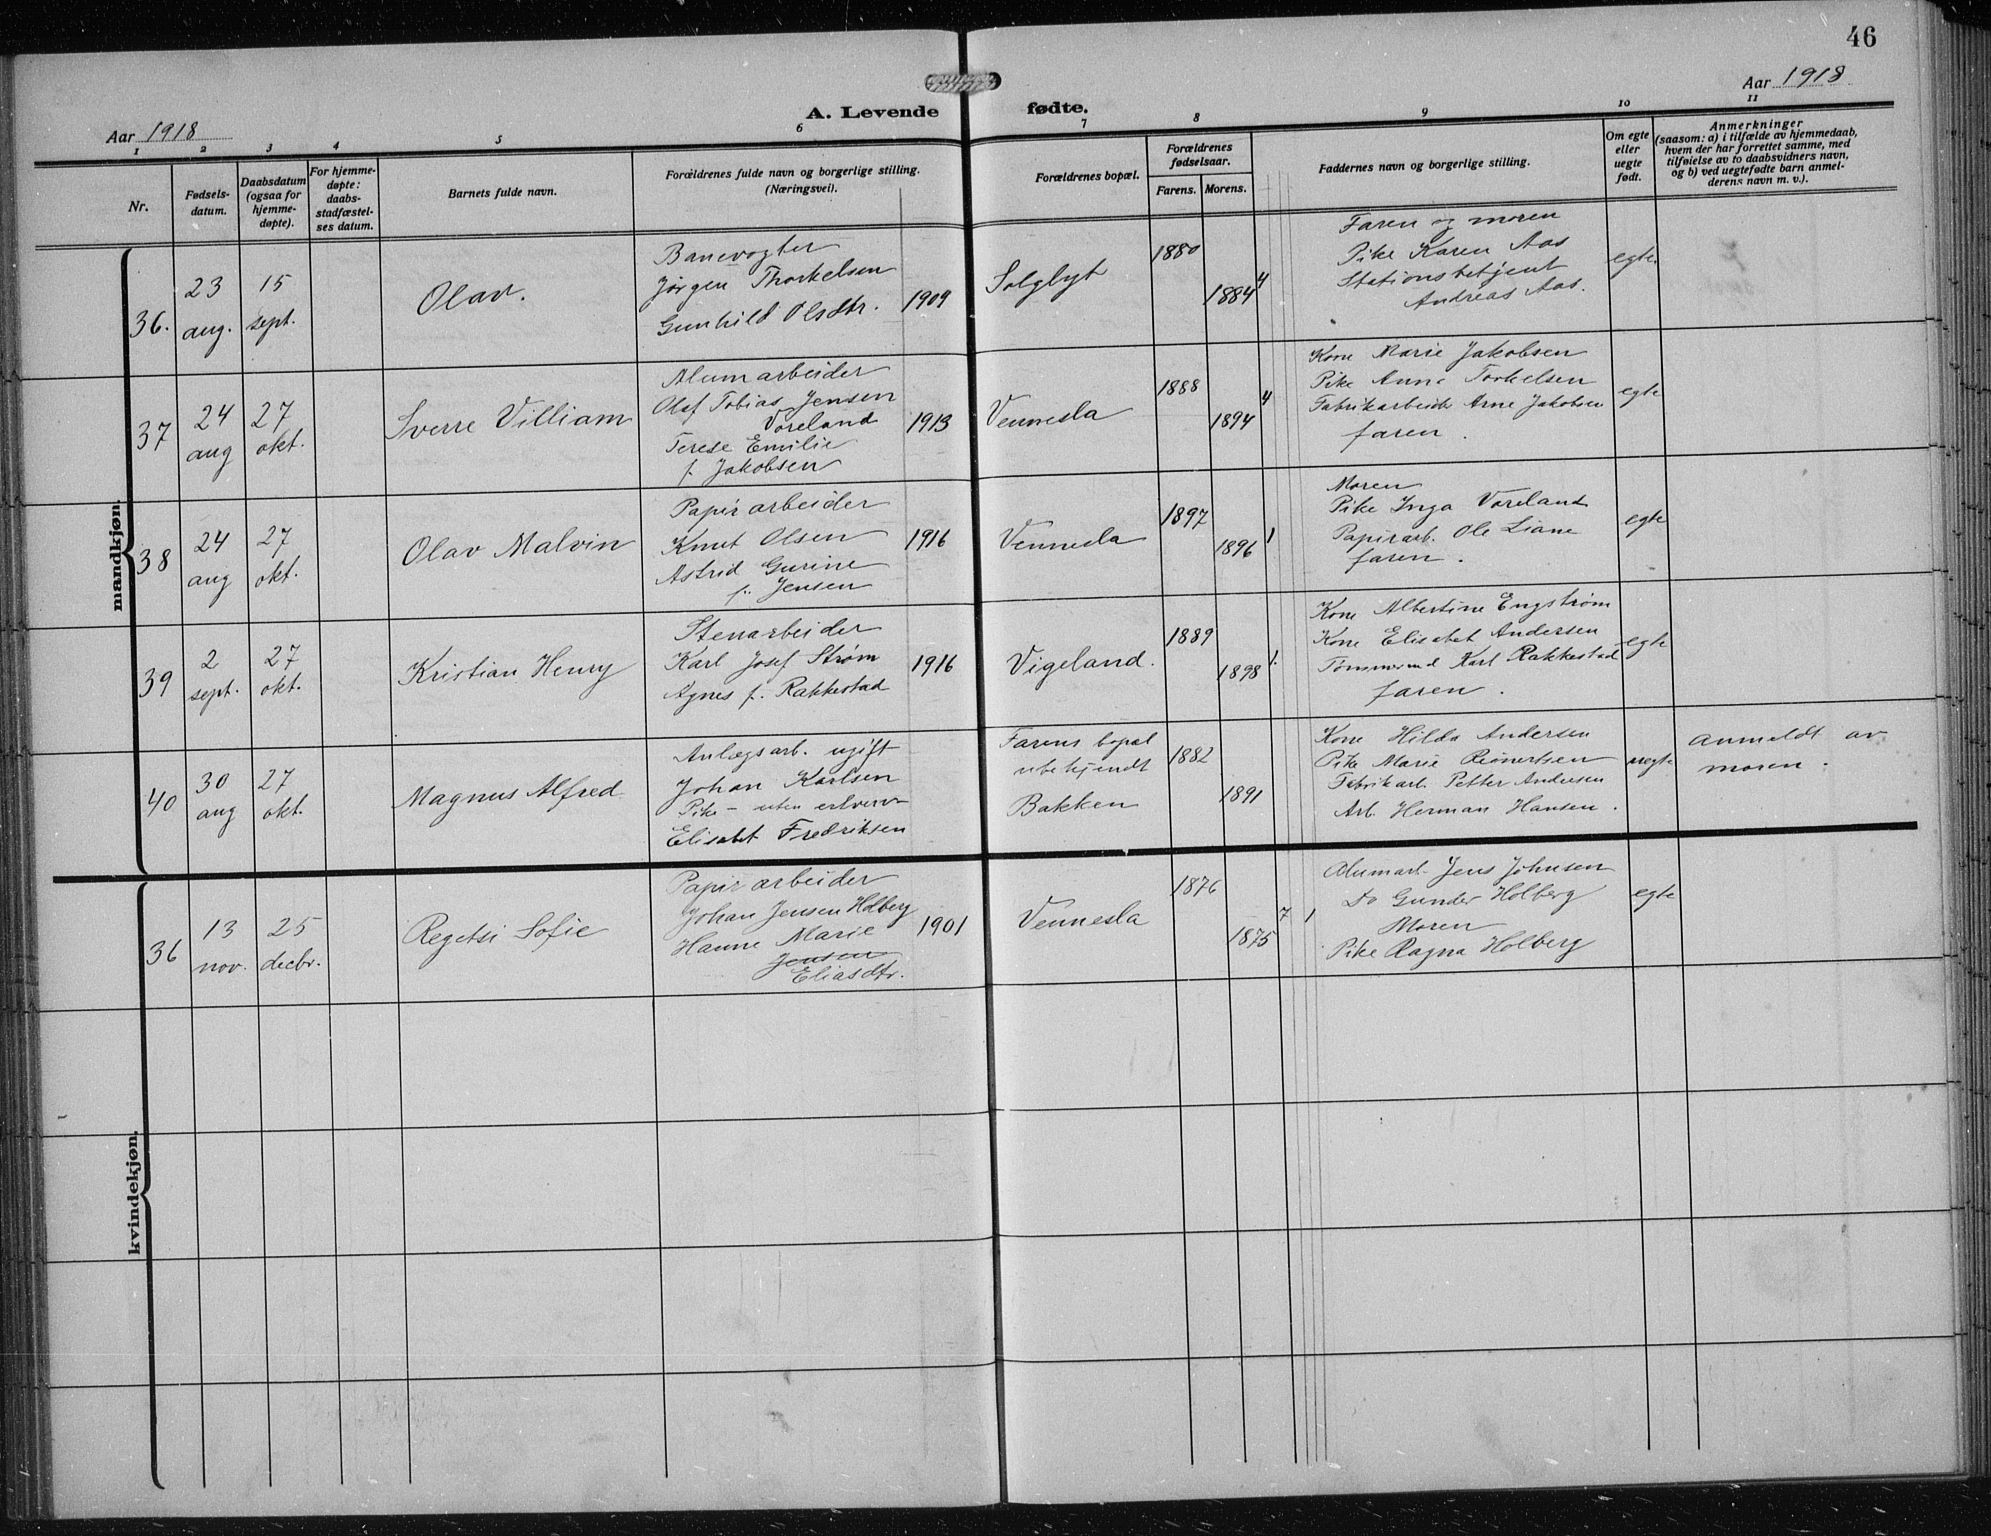 46
Aar 1918
Aar 1918
A. Levende fødte.
1 2 3 4 5 6 7 8 9 10 11
Nr.
Fødsels-
datum.
Daabsdatum
(ogsaa for
hjemme-
døpte).
For hjemme-
døpte:
daabs-
stadfæstel-
ses datum.
Barnets fulde navn.
Forældrenes fulde navn og borgerlige stilling.
(Næringsvei).
Forældrenes bopæl.
Forældrenes
fødselsaar.
Farens. Morens.
Faddernes navn og borgerlige stilling.
Om egte
eller
uegte
født.
Anmerkninger
(saasom: a) i tilfælde av hjemmedaab,
hvem der har forrettet samme, med
tilføielse av to daabsvidners navn,
og b) ved uegtefødte barn anmel-
derens navn m. v.).
mandkjøn.
36.
23
aug.
15
sept.
Olav.
Banevogter
Jørgen Thorkelsen
Gunhild Olsdtr.
1909
Solglyt
1880
1884
4
Faren og moren
Pike Karen Aas
Stationsbetjent
Andreas Aas.
egte
37
24
aug
27
okt.
Sverre Villiam
Alumarbeider
Olaf Tobias Jensen
Voreland
Terese Emilie
f. Jakobsen
1913
Vennesla
1888
1894
4
Kone Marie Jakobsen
Pike Anne Torkelsen
Fabrikarbeider Arne Jakobsen
faren.
egte
38
24
aug
27
okt.
Olav Malvin
Papirarbeider
Knut Olsen
Astrid Gurine
f. Jensen
1916
Vennesla
1897
1896
1
Moren
Pike Inga Voreland
Papirarb. Ole Liane
faren.
egte
39
2
sept.
27
okt.
Kristian Henry
Stenarbeider
Karl Josef Strøm
Agnes f. Rakkestad
1916
Vigeland.
1889
1898
1.
Kone Albertine Engstrøm
Kone Elisabet Andersen
Tømmermd Karl Rakkestad
faren.
egte
40
30
aug
27
okt.
Magnus Alfred
Anlægsarb. ugift
Johan Karlsen
Pike - uten erhverv
Elisabet Fredriksen
Farens bopæl
ubekjendt
Bakken
1882
1891
Kone Hilda Andersen
Pike Marie Reinertsen
Fabrikarb. Petter Andersen
Arb. Herman Hansen.
uegte
anmeldt av
moren.
kvindekjøn.
36
13
nov.
25
decbr.
Regetsi Sofie
Papirarbeider
Johan Jensen Holberg
Hanne Marie
Jensen
Eliasdtr.
1901
Vennesla
1876
1875
7 1
Alumarb. Jens Johnsen
Do Gunder Holberg
Moren
Pike Ragna Holberg
egte